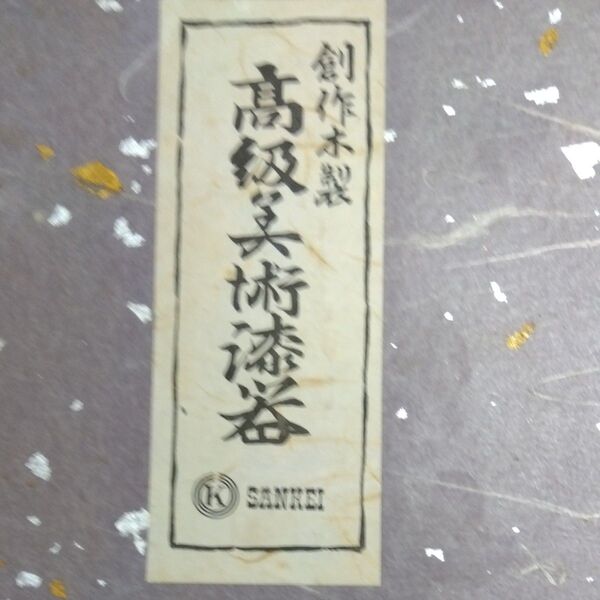 創作木製
高級美術漆器
K SANKEI